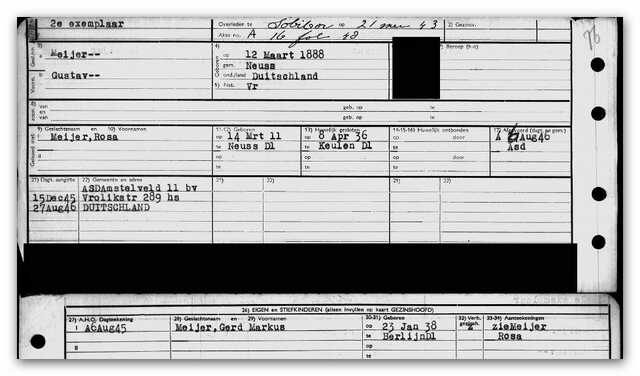 2e exemplaar
Overleden te Sobibor op 21 mei 43
2) Gezinnr.
Akte no. A 16 fol 48
76
3) Meijer--
4) op 12 Maart 1888
gem. Neuss
Gustav--
ond./land Duitschland
5) Nat. Vr
Beroep
van geb. op te
en
van geb. op te
9) Geslachtsnaam en 10) Voornamen
11-12) Geboren
13) Huwelijk gesloten
14-15-16) Huwelijk ontbonden
I Meijer,Rosa
op 14 Mrt 11
op 8 Apr 36
op
te Neuss Dl
te Keulen Dl
te
Aug46
Asd
II
op
op
op
te
te
te
21) Dagt. aangifte
22) Gemeente en adres
21)
22)
21)
22)
ASDAmstelveld 11 bv
15Dec45 Vrolikstr 289 hs
27Aug46 DUITSCHLAND
26) EIGEN en STIEFKINDEREN (alleen invullen op kaart GEZINSHOOFD)
27) A.H.O. Dagtekening
28) Geslachtsnaam en 29) Voornamen
30-31) Geboren
32) Verh.
33-34) Aantekeningen
1 A6Aug45
Meijer,Gerd Markus
op 23 Jan 38
zieMeijer
te BerlijnDl
Rosa